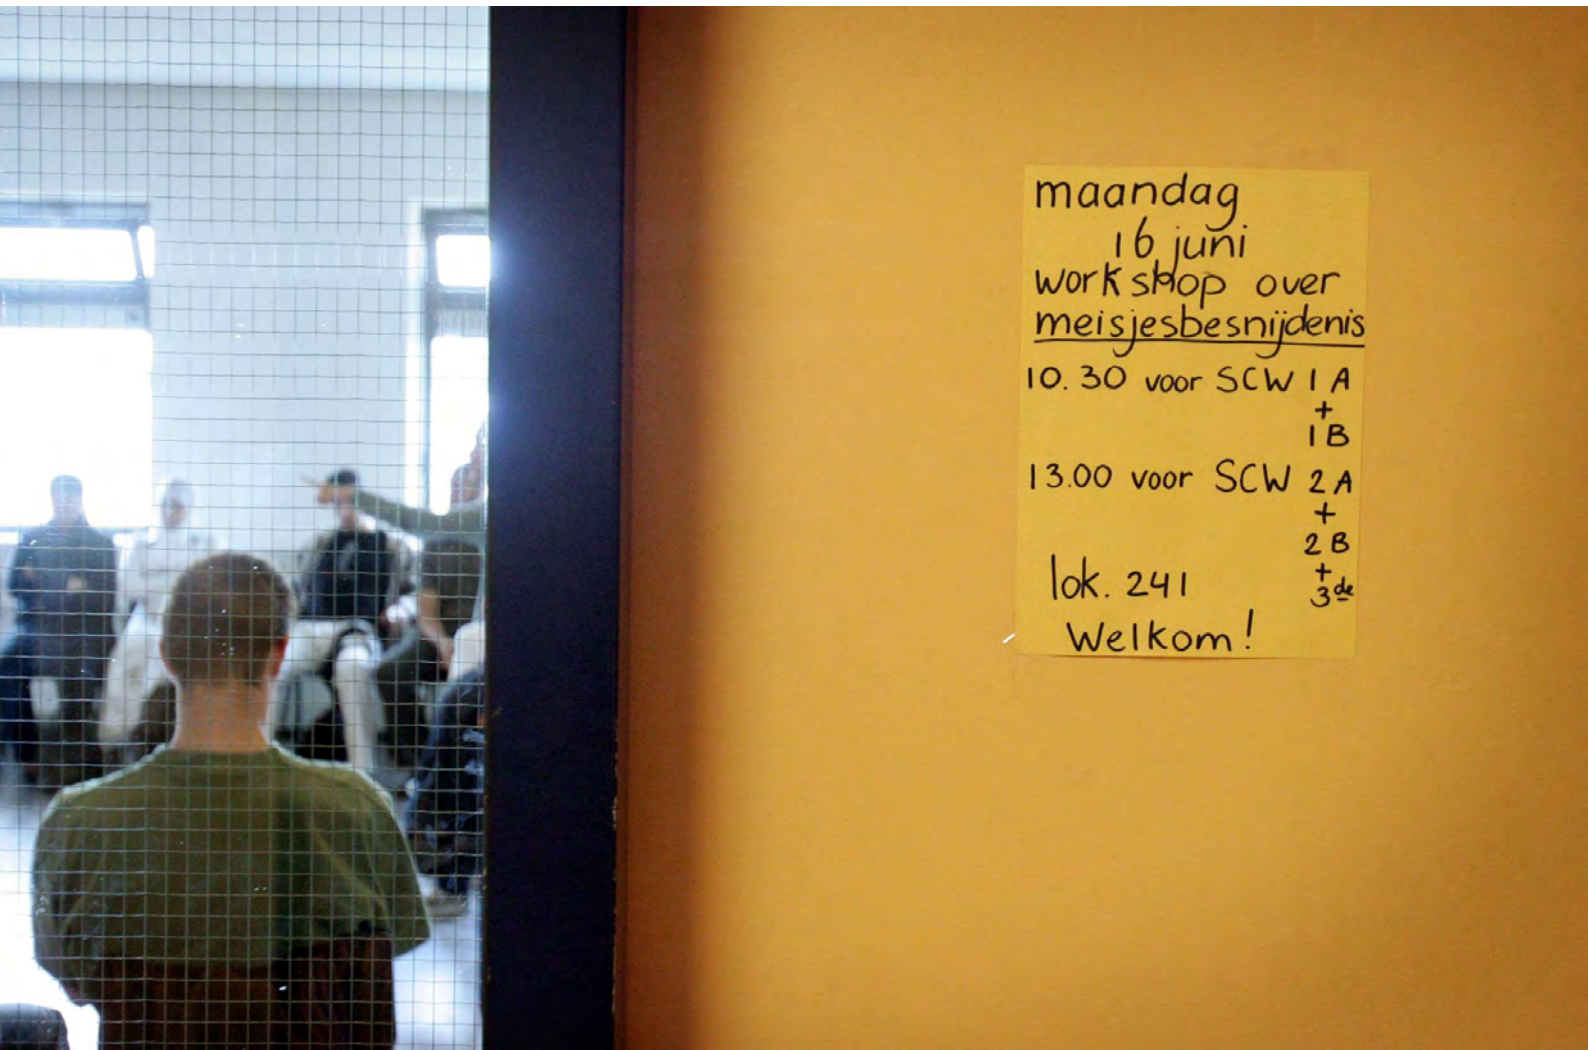 maandag
16 juni
workshop over
meisjesbesnijdenis
10.30 voor SCW 1 A
+
1 B
13.00 voor SCW 2 A
+
2 B
+
lok. 241 3de
Welkom!